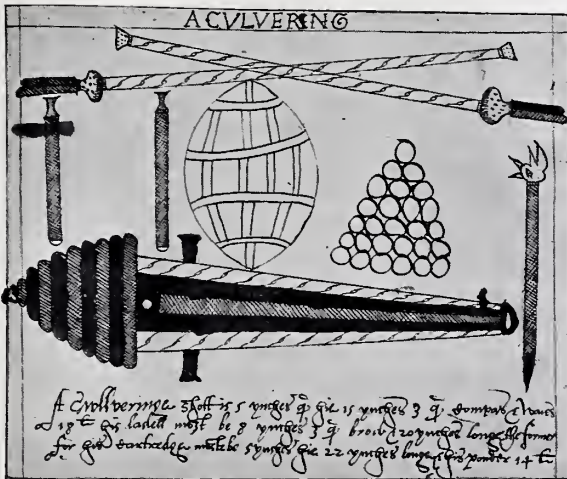 A CVLVERING
A Cvollveringe shott is 5 ynches q̃ hie 15 ynches 3 q̃ compas & waies
18 ˡᵗ his ladell must be 8 ynches 3 q̃ broad & 20 ynches longe the former
for his cartredge must be 5 ynches hie 22 ynches longe & his powder 14 ˡᵗ